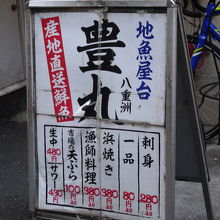 地魚屋台
豊丸
八重洲
産地直送鮮魚
刺身
280円より
一品
80円より
浜焼き
380円より
漁師料理
380円より
市場の天ぷら
100円より
生中
480円
サワー
430円